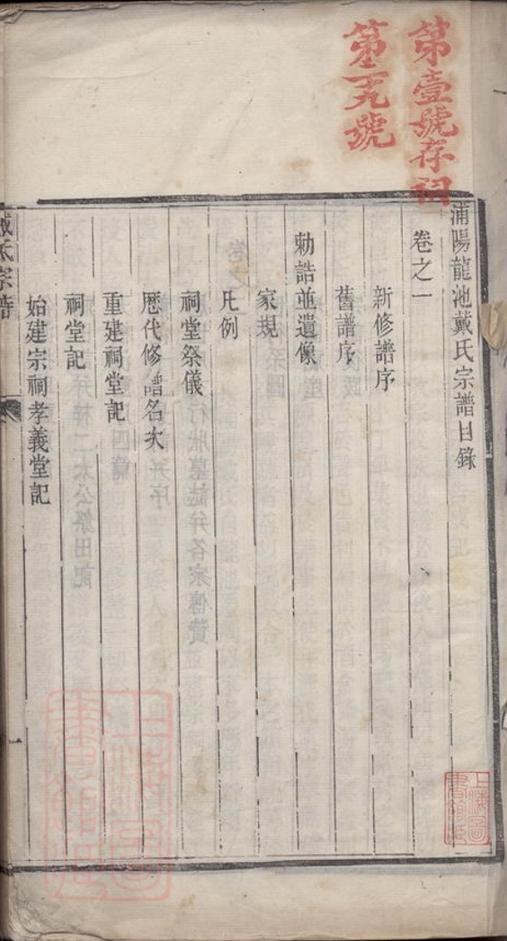 第壹號存祠
第一九號
浦陽龍池戴氏宗譜目錄
卷之一
新修譜序
舊譜序
勅誥並遺像
家規
凡例
祠堂祭儀
歴代修譜名次
重建祠堂記
祠堂記
始建宗祠孝義堂記
戴氏宗譜
一
上海圖書館藏